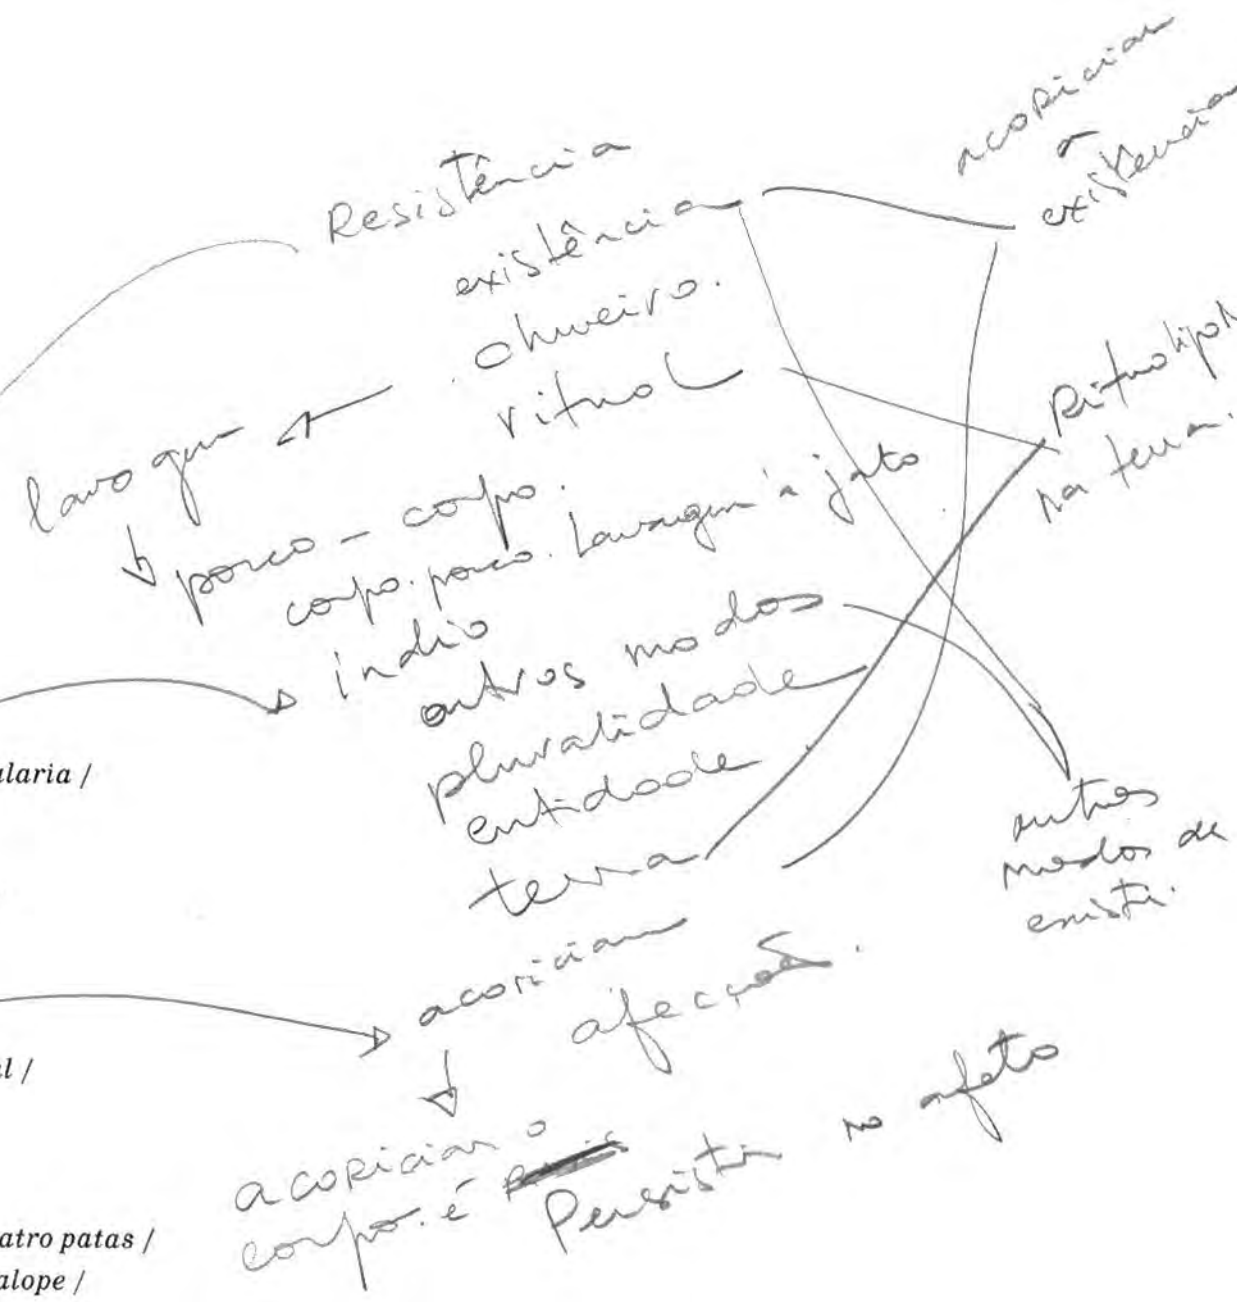 Resistência
existência
chuveiro.
ritual
lavagem
porco - corpo.
corpo. porco. Lavagem à jato
índio
outros modos
pluralidade
entidade
terra
acariciar
afecções.
acariciar o
corpo. é Persistir no afeto
acariciar
a
existência
na terra.
outros
modos de
existir.
alaria /
al /
atro patas /
alope /